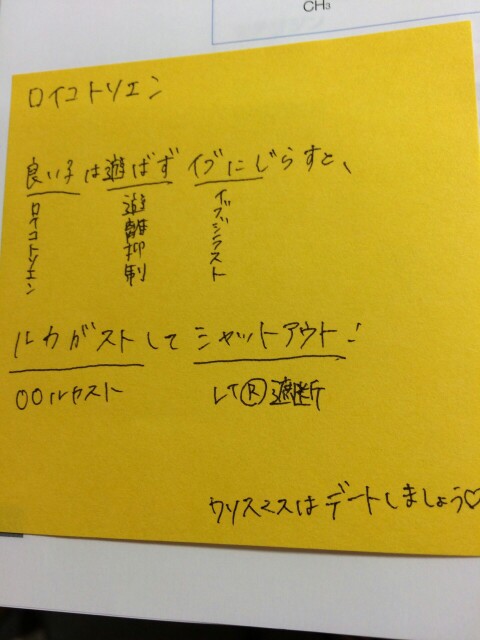 CH₃
ロイコトリエン
良い子は遊ばず イブにじらすと、
ロイコトリエン 遊離抑制 イブジラスト
ルカがストして シャットアウト!
〇〇ルカスト LTⓇ遮断
クリスマスはデートしましょう♡